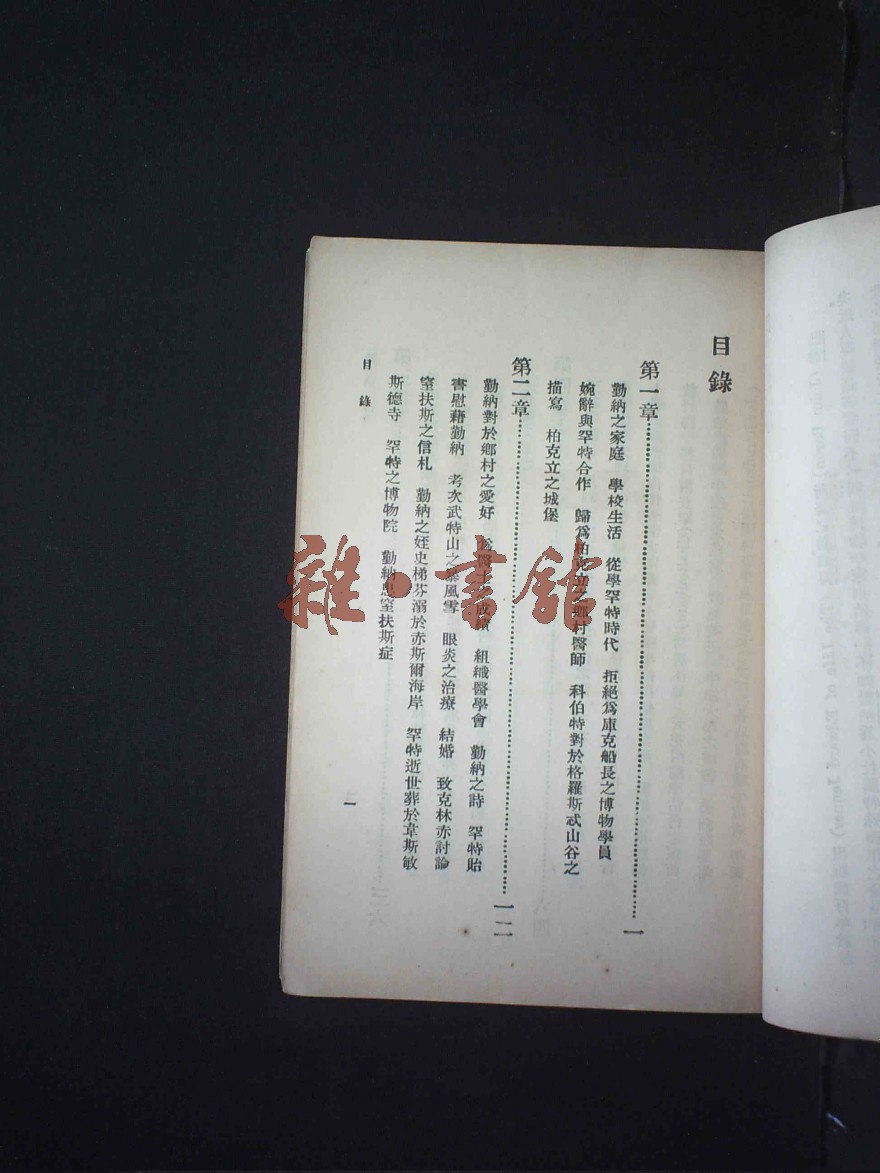 目錄
第一章…………一
勤納之家庭　學校生活　從學罕特時代　拒絕爲庫克船長之博物學員
婉辭與罕特合作　歸爲柏克立之鄉村醫師　科伯特對於格羅斯忒山谷之
描寫　柏克立之城堡
第二章…………一二
勤納對於鄉村之愛好　爲醫士之成績　組織醫學會　勤納之詩　罕特貽
書慰藉勤納　考次武特山之暴風雪　眼炎之治療　結婚　致克林赤討論
窒扶斯之信札　勤納之姪史梯芬溺於赤斯爾海岸　罕特逝世葬於韋斯敏
斯德寺　罕特之博物院　勤納患窒扶斯症
目錄
一
雜·書館